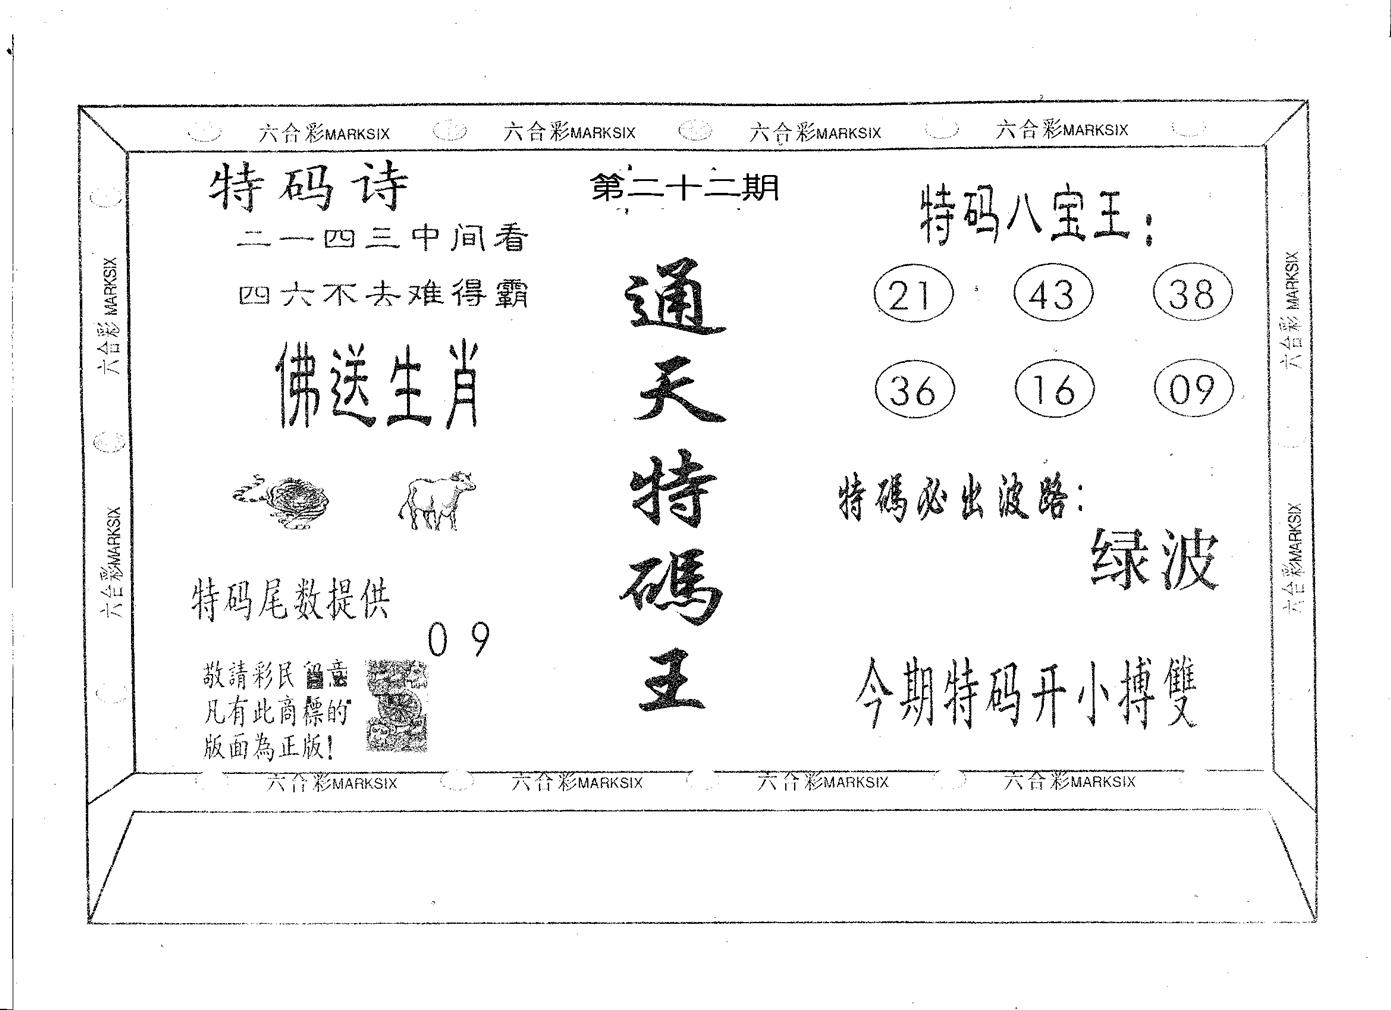 六合彩MARKSIX 六合彩MARKSIX 六合彩MARKSIX 六合彩MARKSIX
特码诗
二一四三中间看
四六不去难得霸
佛送生肖
特码尾数提供
0 9
敬請彩民留意
凡有此商標的
版面為正版!
第二十二期
通天特碼王
特码八宝王:
21 43 38
36 16 09
特碼必出波路:
绿波
今期特码开小搏雙
六合彩 MARKSIX
六合彩MARKSIX
六合彩 MARKSIX
六合彩MARKSIX
六合彩MARKSIX 六合彩MARKSIX 六合彩MARKSIX 六合彩MARKSIX